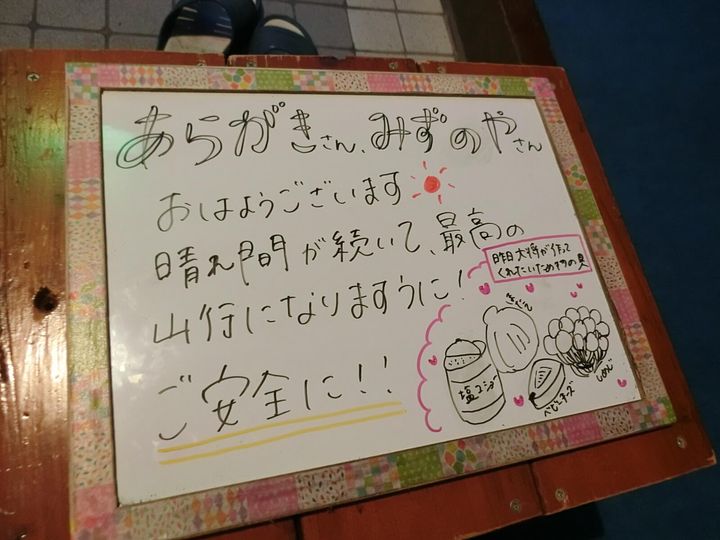 あらがきさん、みずのやさん
おはようございます
晴れ間が続いて、最高の
山行になりますうに！
ご安全に！！
昨日大将が作って
くれたいためものの具
塩コショウ
ベビーチーズ
しめじ